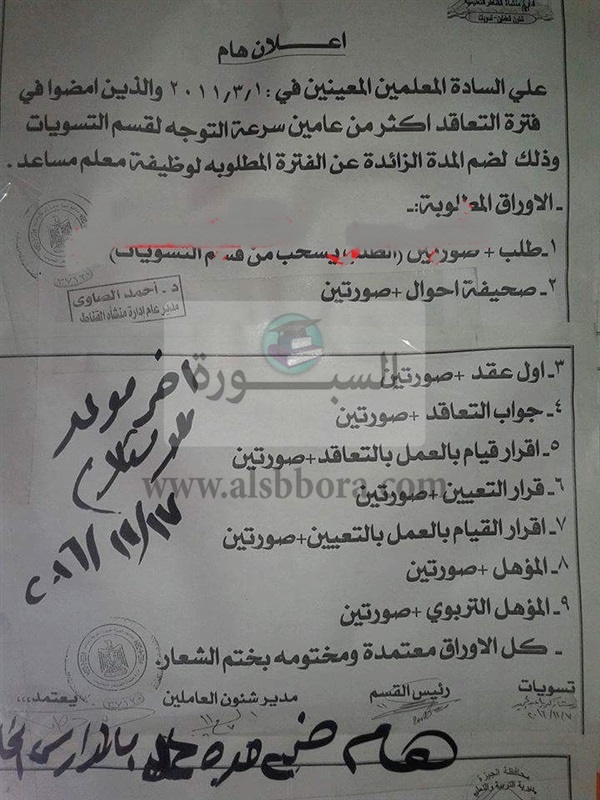 اعلان هام
علي السادة المعلمين المعينين في: ٢٠١١/٣/١ والذين امضوا في
فترة التعاقد اكثر من عامين سرعة التوجه لقسم التسويات
وذلك لضم المدة الزائدة عن الفترة المطلوبه لوظيفة معلم مساعد.
ـ الاوراق المطلوبة:ـ
١ـ طلب + صورتين (الطلب يسحب من قسم التسويات)
٢ـ صحيفة احوال +صورتين
د. أحمد الصاوى
مدير عام إدارة منشأة القناطر
السبورة
٣ـ اول عقد +صورتين
٤ـ جواب التعاقد +صورتين
٥ـ اقرار قيام بالعمل بالتعاقد+صورتين
www.alsbbora.com
٦ـ قرار التعيين +صورتين
٧ـ اقرار القيام بالعمل بالتعيين+صورتين
٨ـ المؤهل +صورتين
٩ـ المؤهل التربوي +صورتين
ـ كل الاوراق معتمدة ومختومه بختم الشعار.
اخر موعد
٢٠١٦/١٢/١٧
تسويات رئيس القسم مدير شئون العاملين يعتمد،،،
هام ضم مدة بالمدارس
محافظة الجيزة
مديرية التربية والتعليم